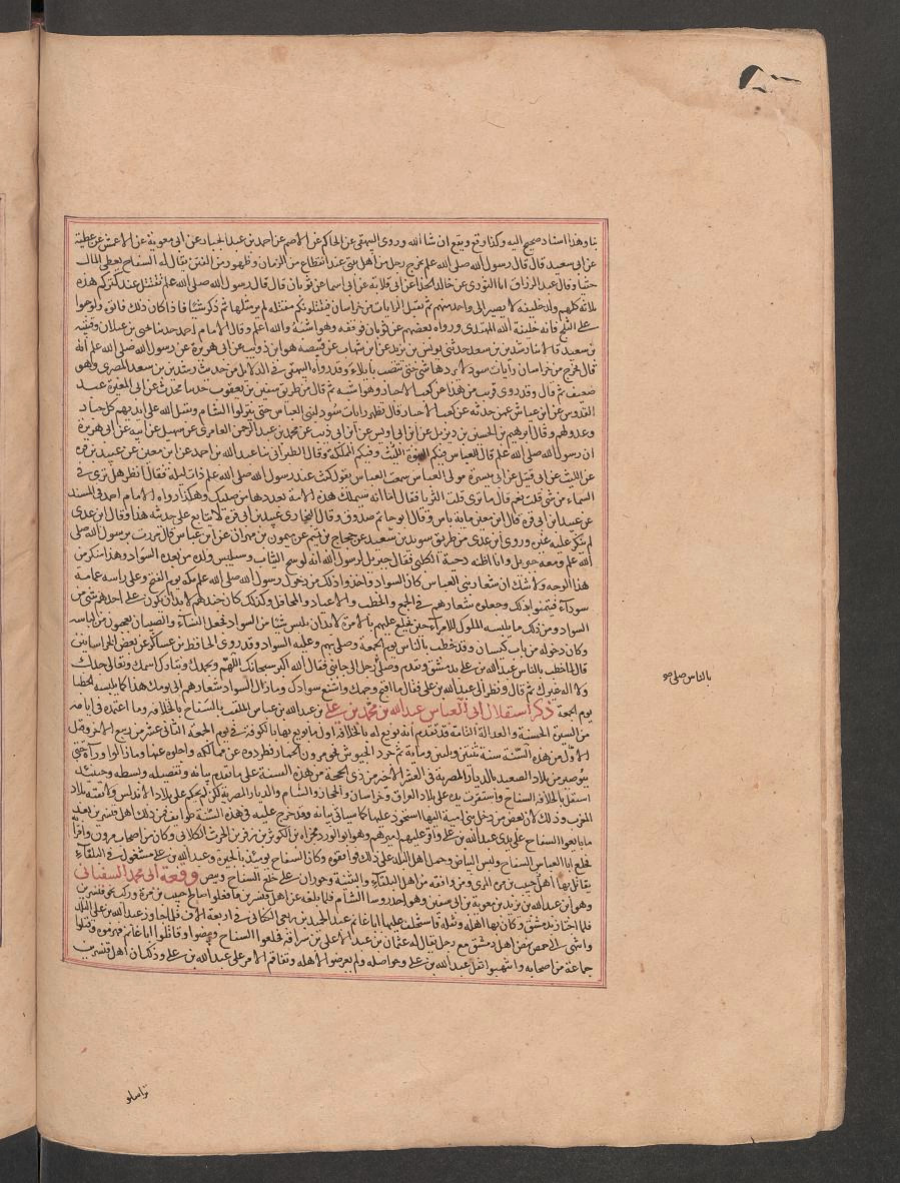 عن ابى سعيد قال قال رسول الله صلى الله علم يخرج رجل من اهل بيتى عند انقطاع من الزمان وظهور من الفتن يقال له السفاح يعطى المال
حثيا وقال عبد الرزاق انا الثورى عن خالد الحذا عن ابى قلابة عن ابى اسما عن ثوبان قال قال رسول الله صلى الله علم يقتتل عند كنزكم هذه
ثلاثة كلهم ولد خليفة لا يصير الى واحد منهم ثم تقبل الرايات من خراسان فيقتلونكم مقتلة لم ير مثلها ثم ذكر شيئا فاذا كان ذلك فاتوه ولو حبوا
على الثلج فانه خليفة الله المهدى ورواه بعضهم عن ثوبان فوقفه وهو اشبه والله اعلم وقال الامام احمد حدثنا يحيى بن غيلان وقتيبة
بن سعيد قالا ثنا رشدين بن سعد حدثنى يونس بن يزيد عن ابن شهاب عن قبيصة هو ابن ذويب عن ابى هريرة عن رسول الله صلى الله علم انه
قال يخرج من خراسان رايات سود لا يردها شى حتى تنصب بايلياء وقد رواه البيهقى فى الدلايل من حديث رشدين بن سعد المصرى وهو
ضعيف ثم قال وقد روى قريب من هذا عن كعب الاحبار وهو اشبه ثم قال من طريق يعقوب بن سفين حدثنا محدث عن ابى المغيرة عبد
القدوس عن ابن عياش عمن حدثه عن كعب الاحبار قال تظهر رايات سود لبنى العباس حتى ينزلوا الشام ويقتل الله على ايديهم كل جبار
وعدو لهم وقال ابرهيم بن الحسين بن ديزيل عن ابن ابى اويس عن ابن ابى ذيب عن محمد بن عبد الرحمن العامرى عن سهيل عن ابيه عن ابى هريرة
ان رسول الله صلى الله علم قال للعباس فيكم النبوة وفيكم المملكة وقال الطبرانى ثنا عبد الله بن احمد عن ابن معين عن عبيد بن قرة
عن الليث عن ابى قبيل عن ابى ميسرة مولى العباس سمعت العباس يقول كنت عند رسول الله صلى الله علم ذات ليلة فقال انظر هل ترى فى
السماء من شى قلت نعم قال ما ترى قلت الثريا فقال اما انه سيملك هذه الامة بعددها من صلبك وهكذا رواه الامام احمد فى المسند
عن عبيد بن ابى قرة قال ابن معين ما به باس وقال ابو حاتم صدوق وقال البخارى عبيد بن ابى قرة لا يتابع على حديثه هذا وقال ابن عدى
لم ينكر عليه غيره وروى ابن عدى من طريق سويد بن سعيد عن حجاج بن تميم عن ميمون بن مهران عن ابن عباس قال مررت برسول الله صلى
الله علم ومعه جبريل وانا اظنه دحية الكلبى فقال جبريل لرسول الله انه لوسخ الثياب وسيلبس ولده من بعده السواد وهذا منكر من
هذا الوجه ولا شك ان شعار بنى العباس كان السواد واخذوا ذلك من دخول رسول الله صلى الله علم مكه يوم الفتح وعلى راسه عمامة
سوداء فتيمنوا بذلك وجعلوه شعارهم فى الجمع والخطب والاعياد والمحافل وكذلك كان جندهم لا بد ان يكون على احدهم شى من
السواد ومن ذلك ما يلبسه الملوك للامراء حين يخلع عليهم
وكان دخوله من باب كيسان وقد خطب بالناس يوم الجمعة وصلى بهم وعليه السواد وقد روى الحافظ بن عساكر عن بعض الخراسانيين
قال لما خطب بالناس عبد الله بن على بدمشق وتقدم وصلى رجل الى جانبى فقال الله اكبر سبحانك اللهم وبحمدك وتبارك اسمك وتعالى جدك
ولا اله غيرك ثم قال ونظر الى عبد الله بن على فقال ما اقبح وجهك واشنع سوادك وما زال السواد شعارهم الى يومك هذا كما يلبسه الخطبا
يوم الجمعة ذكر استقلال ابى العباس عبد الله بن محمد بن على بن عبد الله بن عباس الملقب بالسفاح بالخلافة وما اعتمده فى ايامه
من السيرة الحسنة والعدالة التامة قد تقدم انه بويع له بالخلافة اول ما بويع بها بالكوفة فى يوم الجمعة الثانى عشر من ربيع الاخر وقيل
الاول من هذه السنة سنة ثنتين وثلثين وماية ثم جرد الجيوش نحو مرون الحمار فطردوه عن ممالكه واجلوه عنها وما زالوا وراه حتى
بوصير من بلاد الصعيد بالديار المصرية فى العشر الاخير من ذى الحجة من هذه السنة على ما تقدم بيانه وتفصيله وبسطه وحينئذ
استقل بالخلافة السفاح واستقرت يده على بلاد العراق وخراسان والحجاز والشام والديار المصرية لكن لم يحكم على بلاد الاندلس ولا بلاد
المغرب وذلك لان بعض من دخل من بنى امية اليها استحوذ عليها كما سياتى بيانه وقد خرج عليه فى هذه السنة طوايف فمن ذلك اهل قنسرين بعد
ما بايعوا السفاح على يدى عبد الله بن على واقر عليهم اميرهم وهو ابو الورد مجزاة بن الكوثر بن زفر بن الحرث الكلابى وكان من اصحاب مرون
فخلع ابا العباس السفاح ولبس البياض وحمل اهل البلد على ذلك فوافقوه وكان السفاح يومئذ بالحيرة وعبد الله بن على مشغول فى البلقاء
يقاتل بها حبيب بن مرة المرى ومن وافقه من اهل البلقاء والبثنية وحوران على خلع السفاح وبيض وقعة ابى محمد السفيانى
وهو ابن عبد الله بن يزيد بن معوية بن ابى سفين
فلما اجتاز بدمشق وكان بها اهله وثقله فاستخلف عليها ابا غانم عبد الحميد بن ربعى الكنانى فى اربعة الاف فلما جاوز عبد الله بن على البلد
وانتهى الى حمص نهض اهل دمشق مع رجل يقال له عثمان بن عبد الاعلى بن سراقة فخلعوا السفاح وبيضوا وقاتلوا ابا غانم فهزموه وقتلوا
جماعة من اصحابه وانتهبوا ثقل عبد الله بن على وحواصله ولم يعرضوا لاهله وتفاقم الامر على عبد الله بن على وذلك ان اهل قنسرين